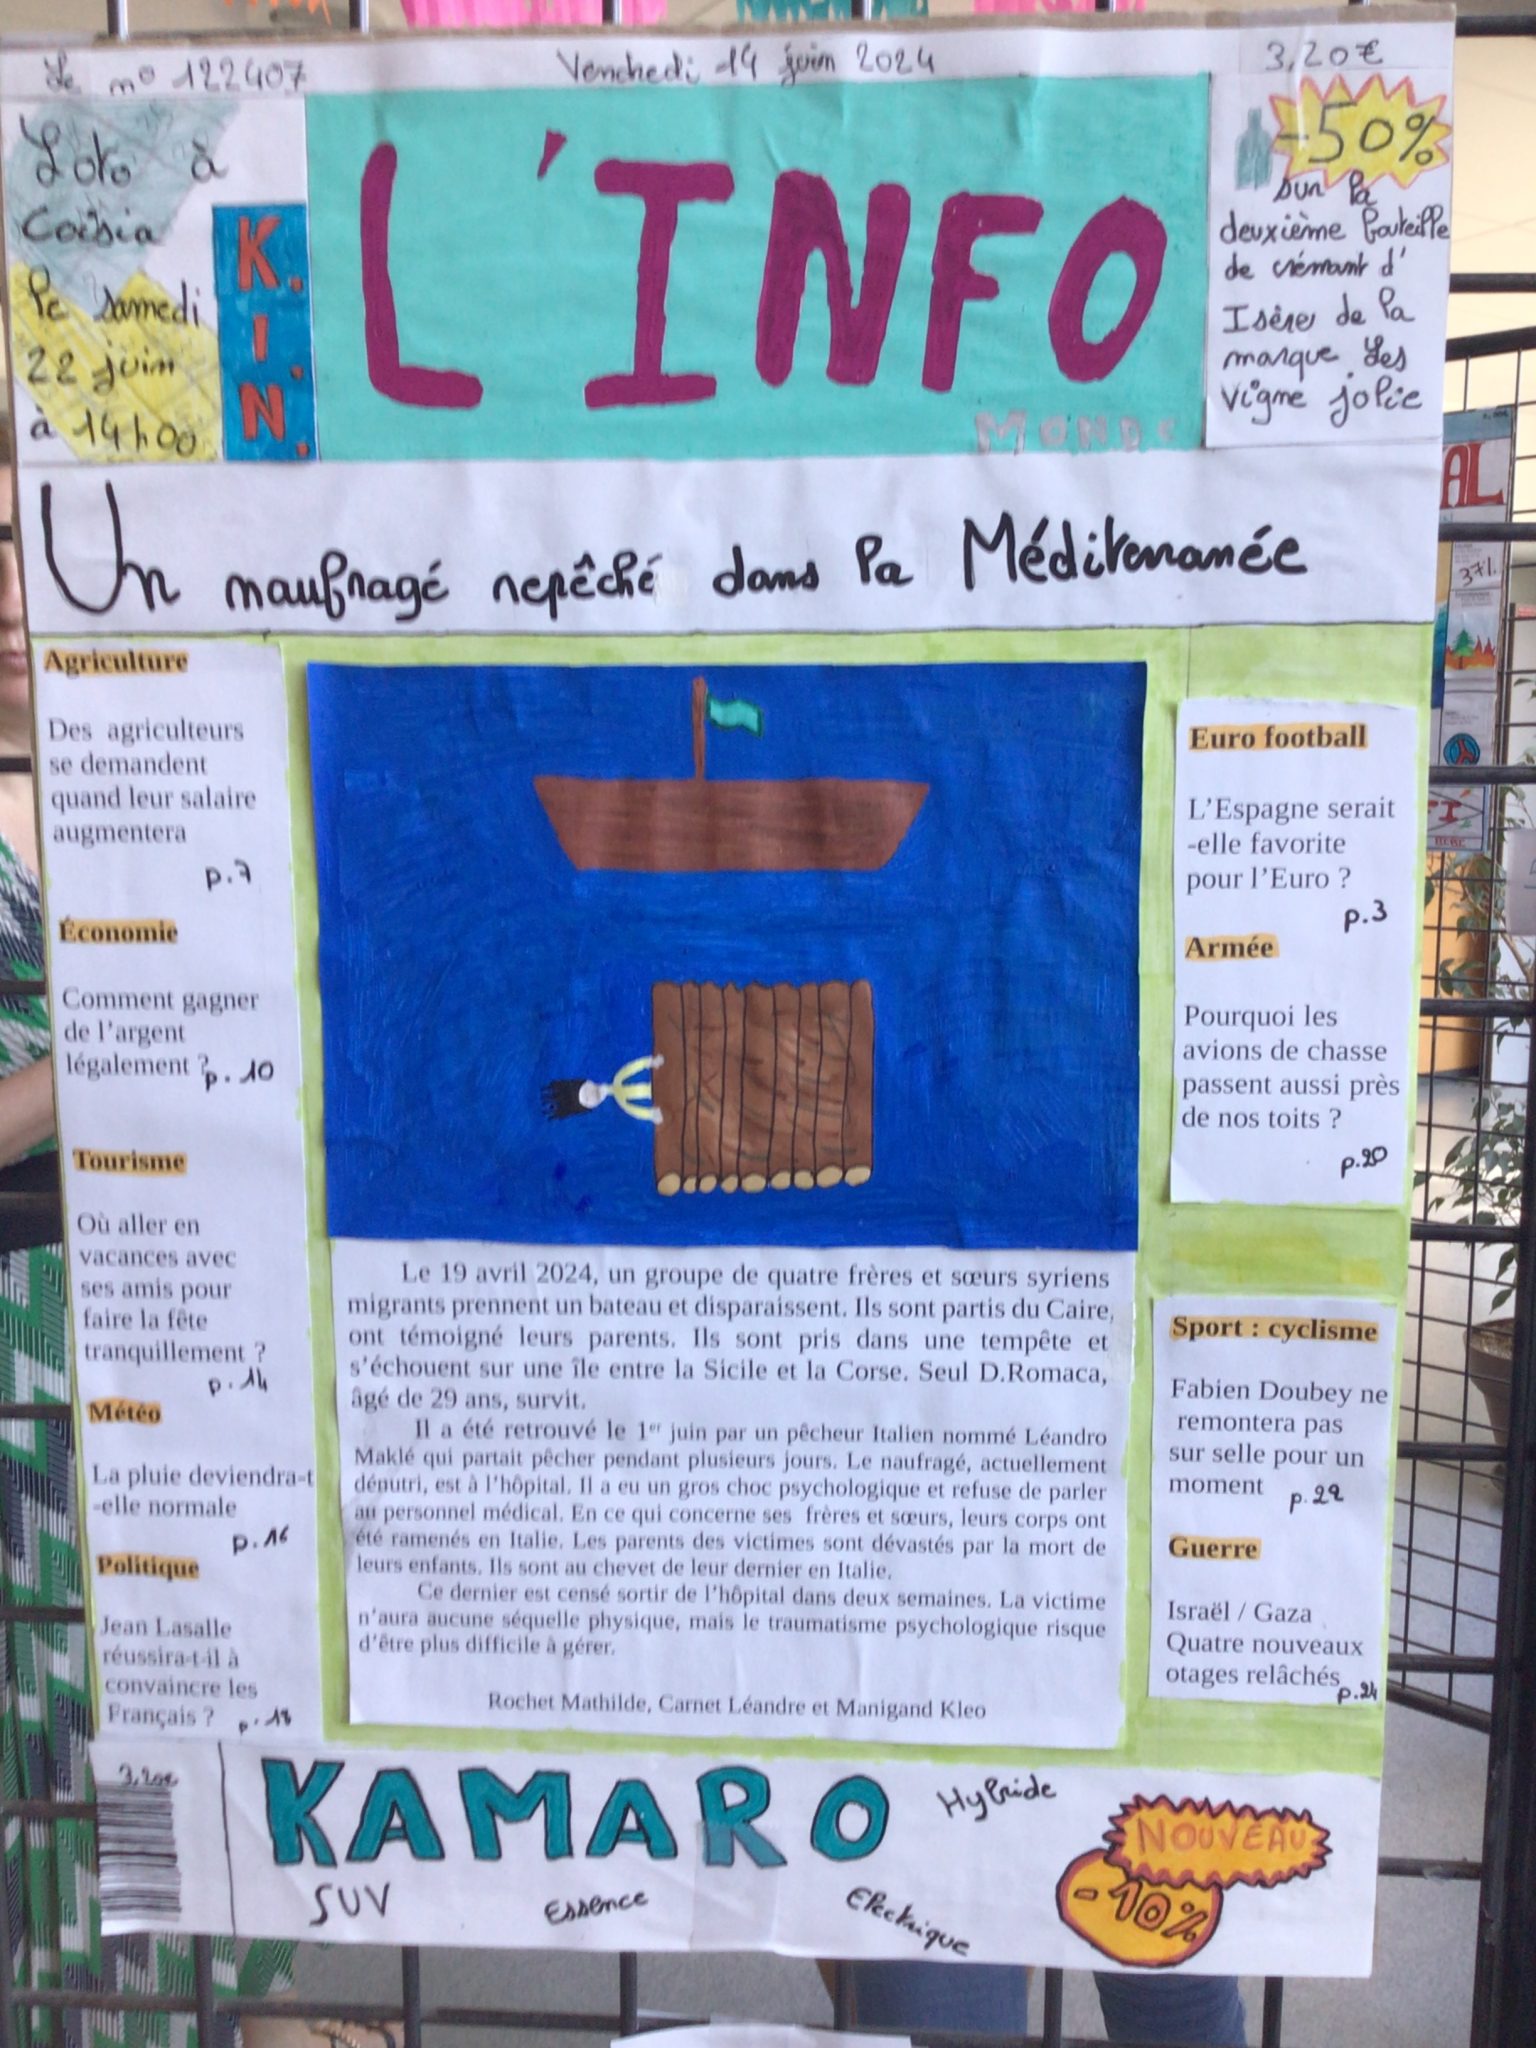 Le n° 122407
Vendredi 14 juin 2024
3,20€
Loto à
Coisia
le samedi
22 juin
à 14h00
K.
I.
N.
L'INFO
MONDE
-50%
sur la
deuxième bouteille
de crémant d'
Isère de la
marque Les
vigne jolie
Un naufragé repêché dans la Méditerranée
Agriculture
Des agriculteurs
se demandent
quand leur salaire
augmentera
p.7
Économie
Comment gagner
de l'argent
légalement ?
p.10
Tourisme
Où aller en
vacances avec
ses amis pour
faire la fête
tranquillement ?
p.14
Météo
La pluie deviendra-t
-elle normale
p.16
Politique
Jean Lasalle
réussira-t-il à
convaincre les
Français ?
p.18
Le 19 avril 2024, un groupe de quatre frères et sœurs syriens
migrants prennent un bateau et disparaissent. Ils sont partis du Caire,
ont témoigné leurs parents. Ils sont pris dans une tempête et
s'échouent sur une île entre la Sicile et la Corse. Seul D.Romaca,
âgé de 29 ans, survit.
Il a été retrouvé le 1er juin par un pêcheur Italien nommé Léandro
Maklé qui partait pêcher pendant plusieurs jours. Le naufragé, actuellement
dénutri, est à l'hôpital. Il a eu un gros choc psychologique et refuse de parler
au personnel médical. En ce qui concerne ses frères et sœurs, leurs corps ont
été ramenés en Italie. Les parents des victimes sont dévastés par la mort de
leurs enfants. Ils sont au chevet de leur dernier en Italie.
Ce dernier est censé sortir de l'hôpital dans deux semaines. La victime
n'aura aucune séquelle physique, mais le traumatisme psychologique risque
d'être plus difficile à gérer.
Rochet Mathilde, Carnet Léandre et Manigand Kleo
Euro football
L'Espagne serait
-elle favorite
pour l'Euro ?
p.3
Armée
Pourquoi les
avions de chasse
passent aussi près
de nos toits ?
p.20
Sport : cyclisme
Fabien Doubey ne
remontera pas
sur selle pour un
moment
p.22
Guerre
Israël / Gaza
Quatre nouveaux
otages relâchés
p.24
3,20€
KAMARO
Hybride
SUV
Essence
Electrique
NOUVEAU
-10%
AL
37%